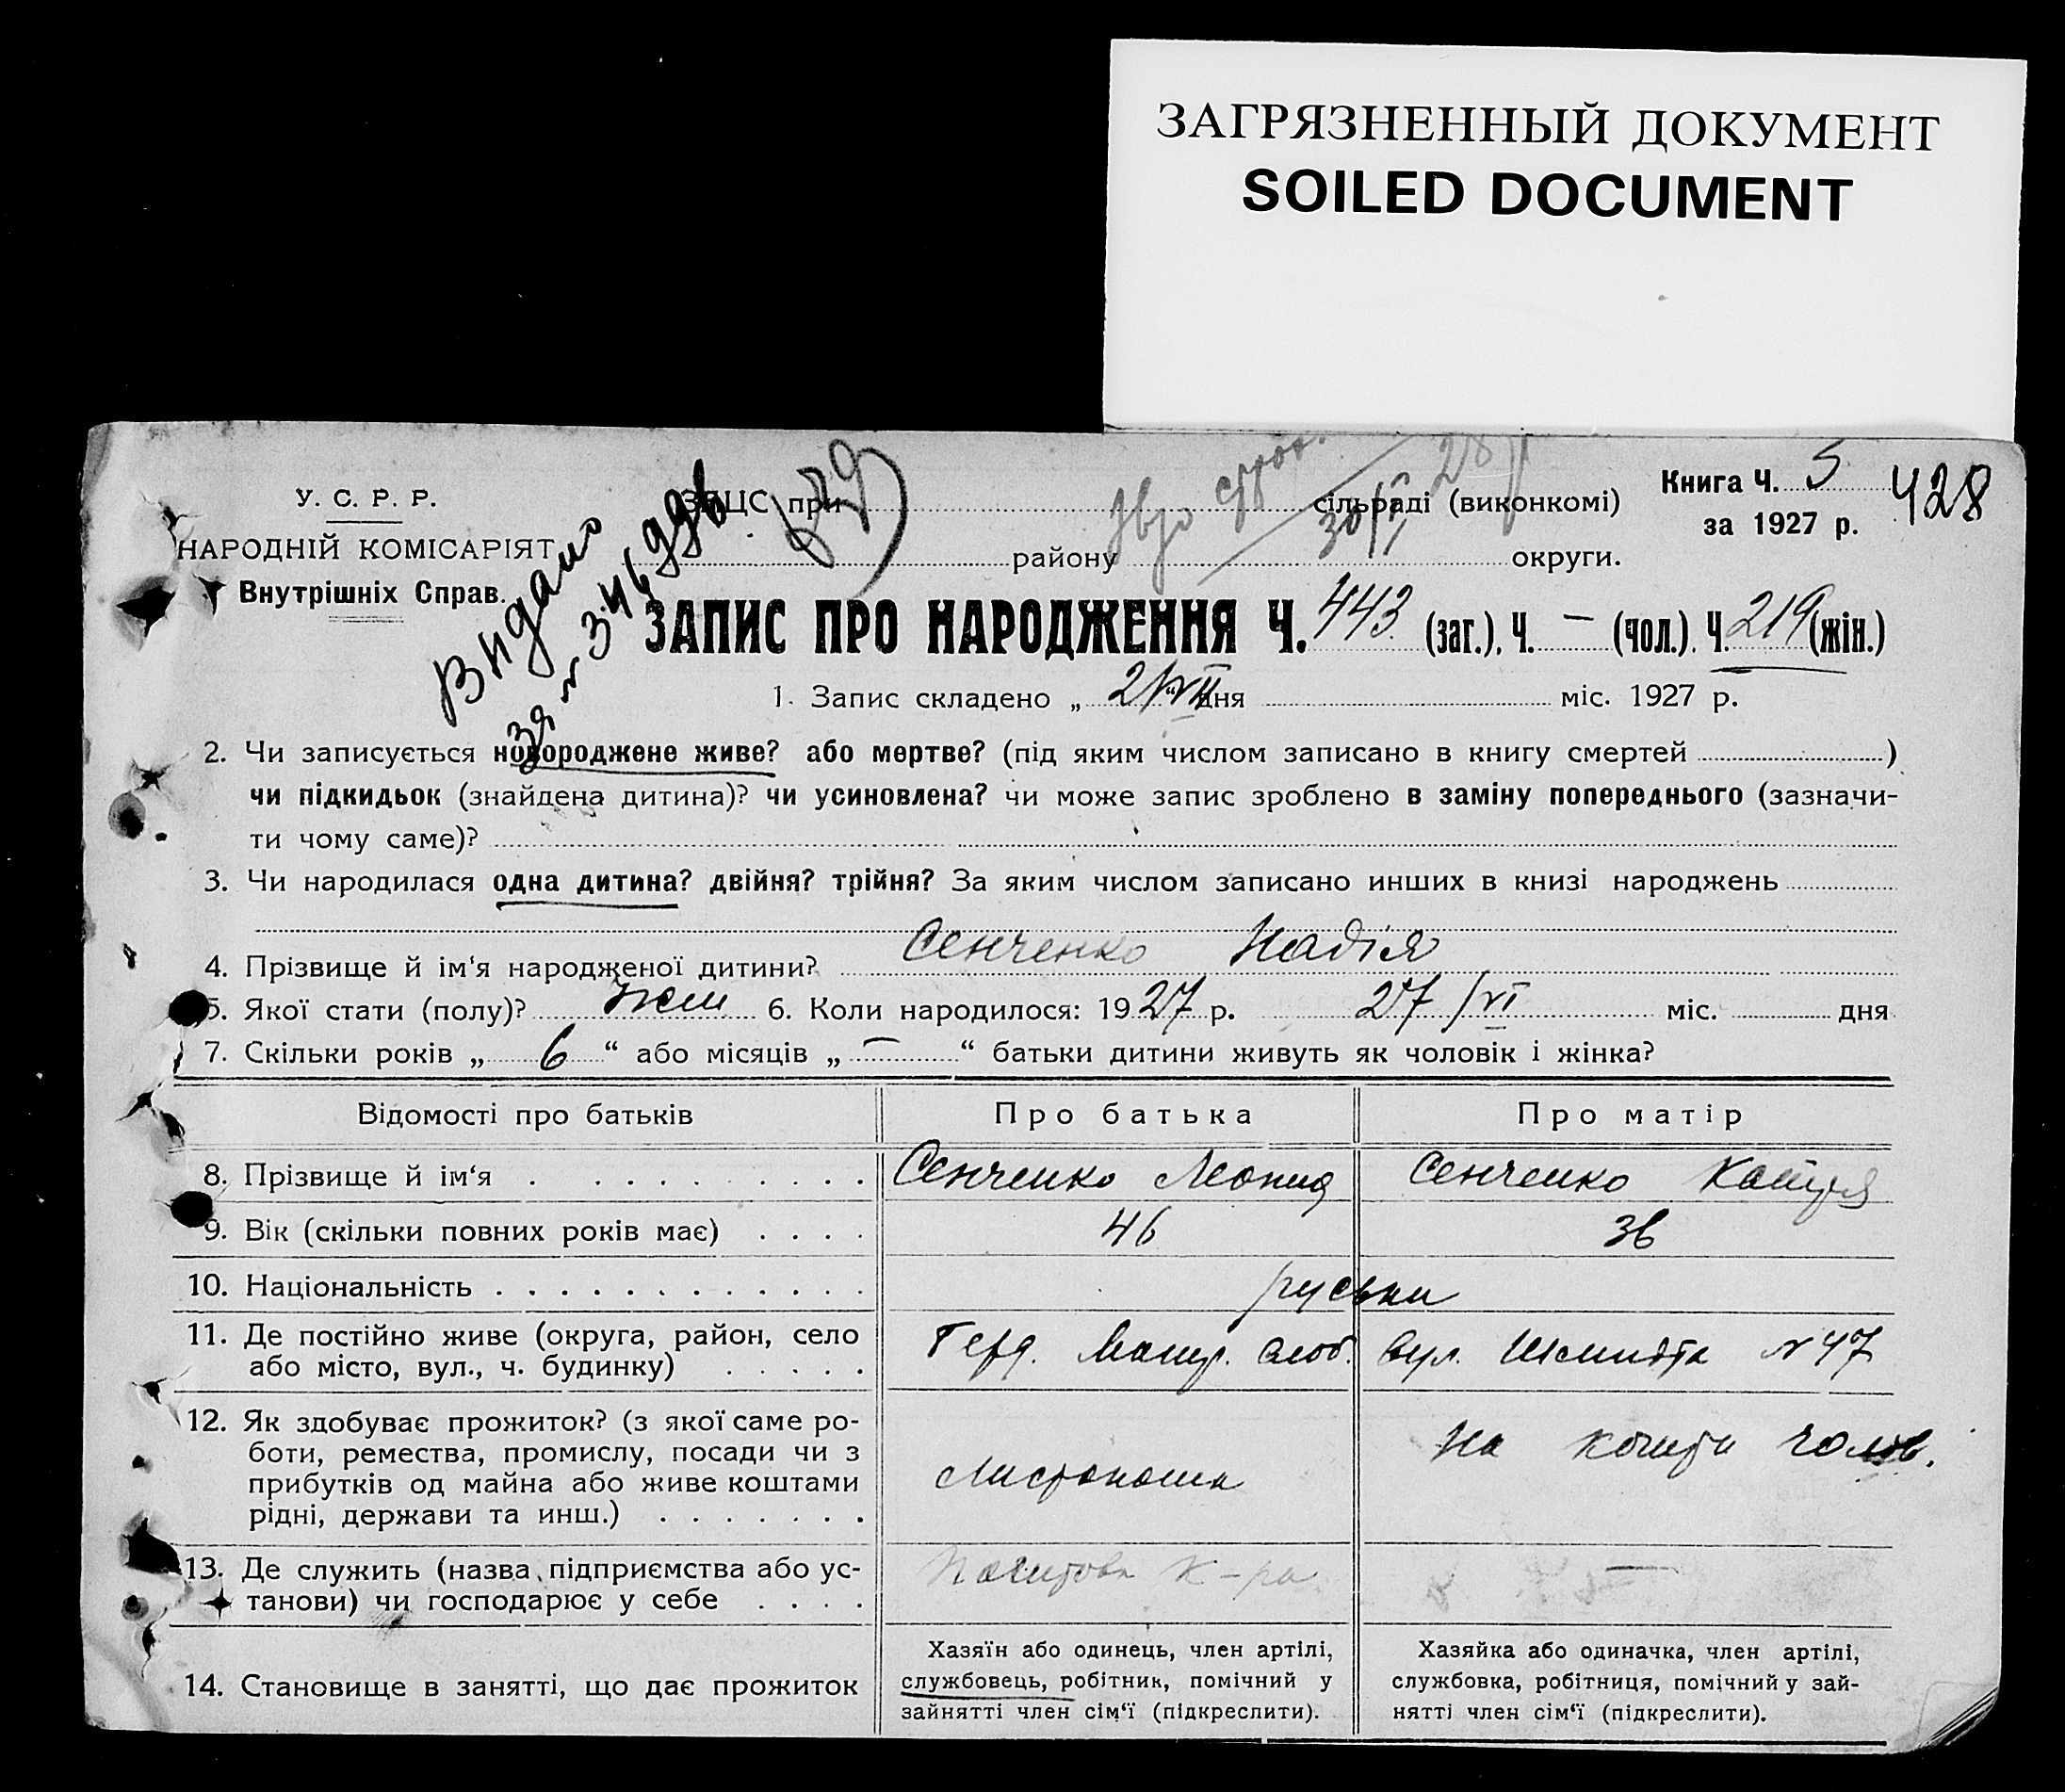 ЗАГРЯЗНЕННЫЙ ДОКУМЕНТ
SOILED DOCUMENT
У. С. Р. Р.
НАРОДНІЙ КОМІСАРІЯТ
Внутрішніх Справ.
ЗАЦС при сільраді (виконкомі)
району округи.
Книга Ч. 5 428
за 1927 р.
Видано
ЗАПИС ПРО НАРОДЖЕННЯ Ч. 443 (заг.). Ч. — (чол.). Ч. 219 (жін.)
1. Запис складено „ 2/VII “ дня міс. 1927 р.
2. Чи записується новороджене живе? або мертве? (під яким числом записано в книгу смертей )
чи підкидьок (знайдена дитина)? чи усиновлена? чи може запис зроблено в заміну попереднього (зазначи-
ти чому саме)?
3. Чи народилася одна дитина? двійня? трійня? За яким числом записано инших в книзі народжень
4. Прізвище й ім‘я народженої дитини? Сенченко Надія
5. Якої стати (полу)? жен 6. Коли народилося: 1927 р. 27/VI міс. дня
7. Скільки років „ 6 “ або місяців „ — “ батьки дитини живуть як чоловік і жінка?
Відомості про батьків Про батька Про матір
8. Прізвище й ім‘я Сенченко Леонид Сенченко
9. Вік (скільки повних років має) 46 36
10. Національність руськи
11. Де постійно живе (округа, район, село
або місто, вул., ч. будинку) слоб. вул. Шмидта N 47
12. Як здобуває прожиток? (з якої саме ро-
боти, ремества, промислу, посади чи з
прибутків од майна або живе коштами
рідні, держави та инш.) Листоноша На кошти чолов.
13. Де служить (назва підприємства або ус-
танови) чи господарює у себе Поштова к-ра —
14. Становище в занятті, що дає прожиток
Хазяїн або одинець, член артілі,
службовець, робітник, помічний у
зайнятті член сім‘ї (підкреслити).
Хазяйка або одиначка, член артілі,
службовка, робітниця, помічний у зай-
нятті член сім‘ї (підкреслити).